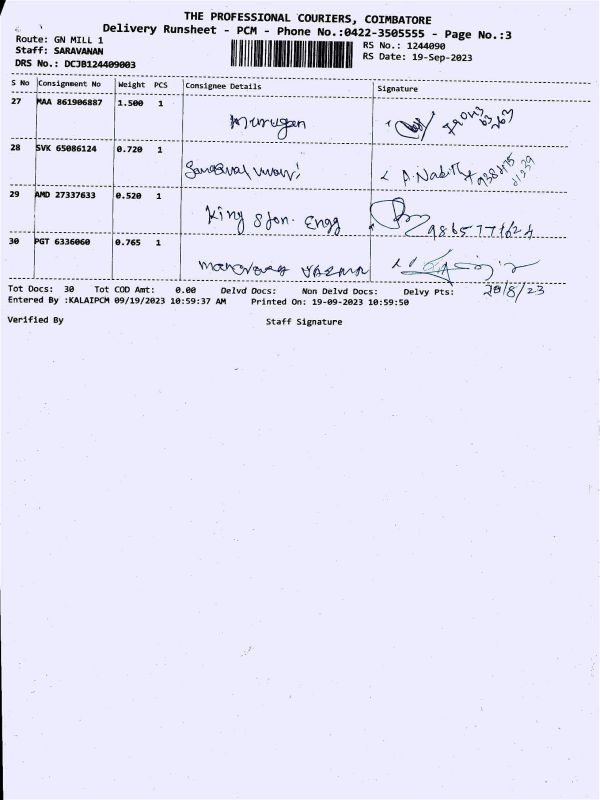 THE PROFESSIONAL COURIERS, COIMBATORE
Delivery Runsheet - PCM - Phone No.:0422-3505555 - Page No.:3
Route: GN MILL 1
RS No.: 1244090
Staff: SARAVANAN
RS Date: 19-Sep-2023
DRS No.: DCJB124409003
S No Consignment No Weight PCS Consignee Details Signature
27 MAA 861906887 1.500 1 Murugan
28 SVK 65086124 0.720 1
29 AMD 27337633 0.520 1 King Ston. Engg
30 PGT 6336060 0.765 1
Tot Docs: 30 Tot COD Amt: 0.00 Delvd Docs: Non Delvd Docs: Delvy Pts:
Entered By :KALAIPCM 09/19/2023 10:59:37 AM Printed On: 19-09-2023 10:59:50
Verified By Staff Signature